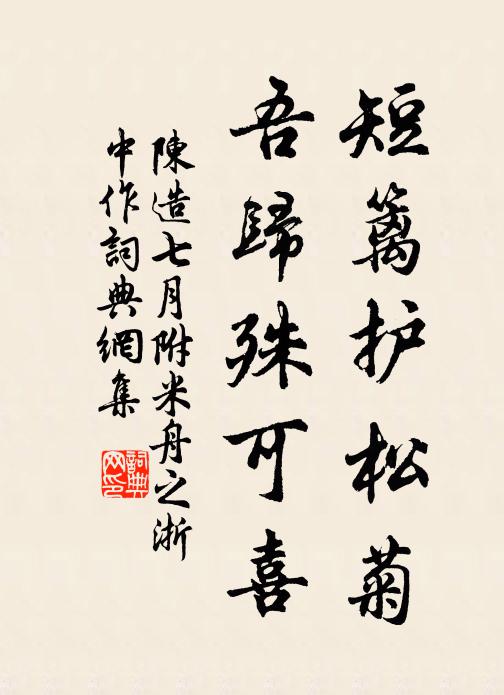 短篱护松菊
吾歸殊可喜
陳造七月附米舟之浙
中作詞典網集
詞典网印